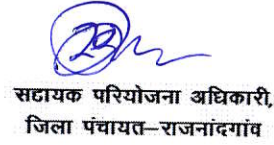 सहायक परियोजना अधिकारी,
जिला पंचायत–राजनांदगांव